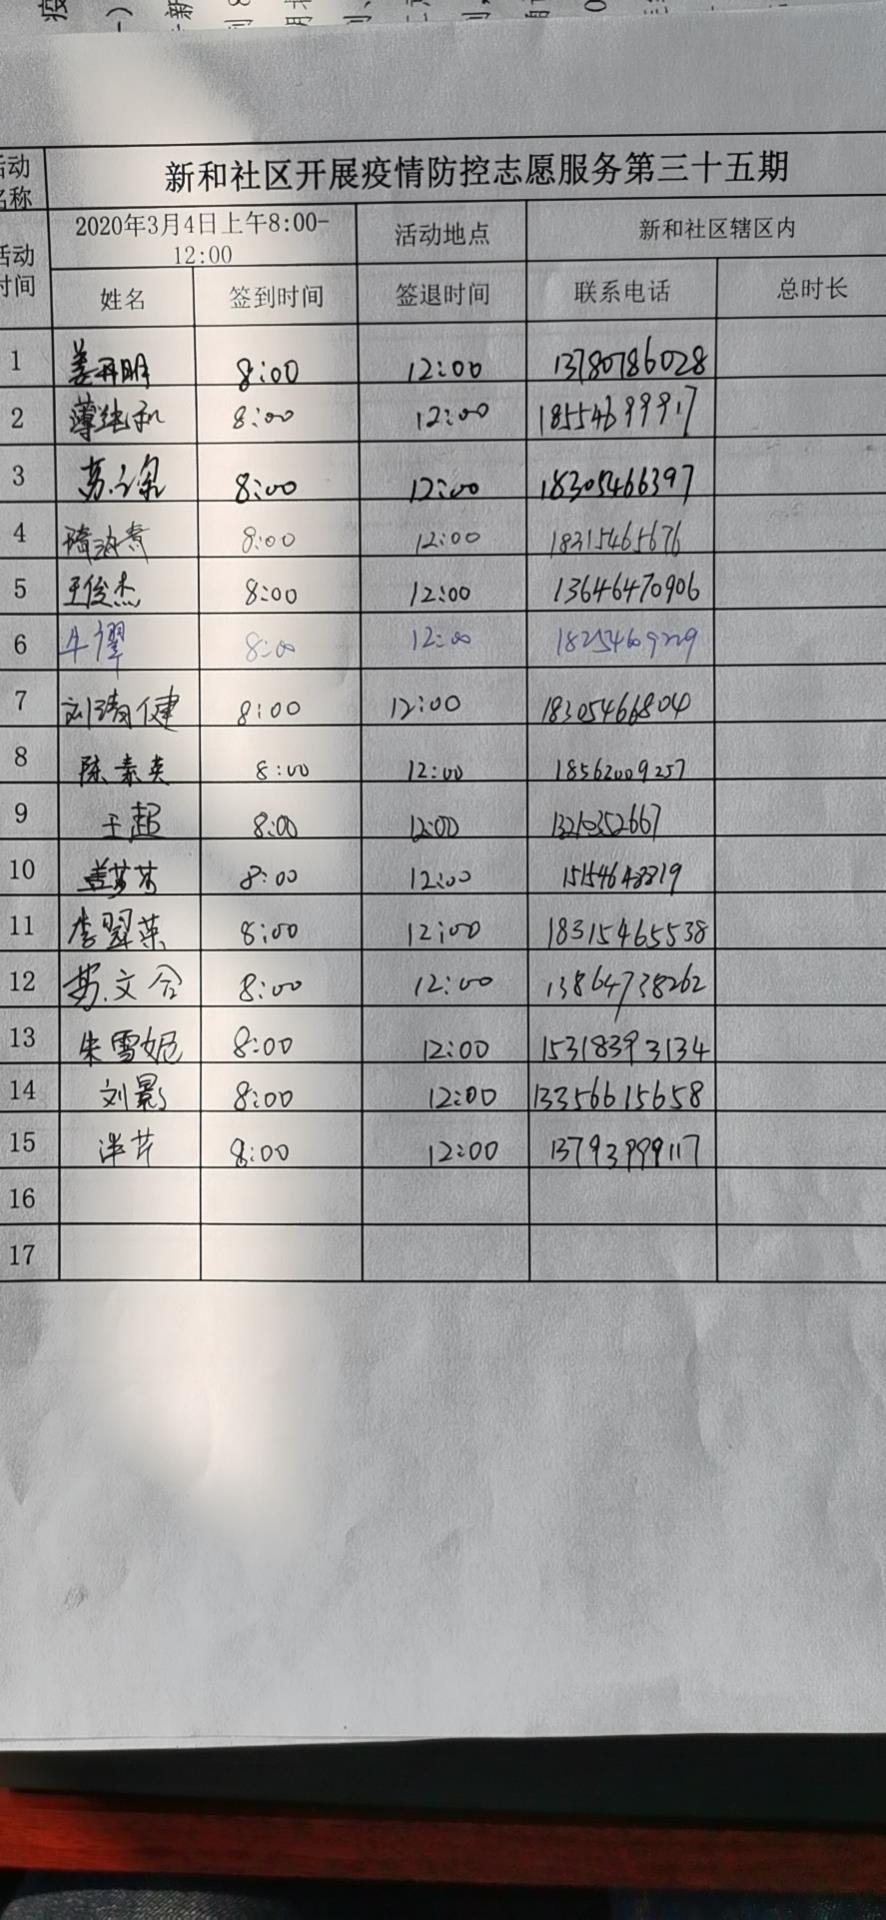 活动名称 新和社区开展疫情防控志愿服务第三十五期
活动时间 2020年3月4日上午8:00-12:00 活动地点 新和社区辖区内
姓名 签到时间 签退时间 联系电话 总时长
1 姜丹明 8:00 12:00 13780786028
2 薄纯和 8:00 12:00 18554699917
3 苏 8:00 12:00 18305466397
4 8:00 12:00 18315465676
5 王俊杰 8:00 12:00 13646470906
6 牛 8:00 12:00 18254609229
7 刘清健 8:00 12:00 18305466804
8 陈素英 8:00 12:00 18562009257
9 王超 8:00 12:00
10 盖芳芳 8:00 12:00 15154648819
11 李翠荣 8:00 12:00 18315465538
12 苏文合 8:00 12:00 13864738262
13 朱雪妮 8:00 12:00 15318393134
14 刘影 8:00 12:00 13356615658
15 洋芹 8:00 12:00 13793999117
16
17